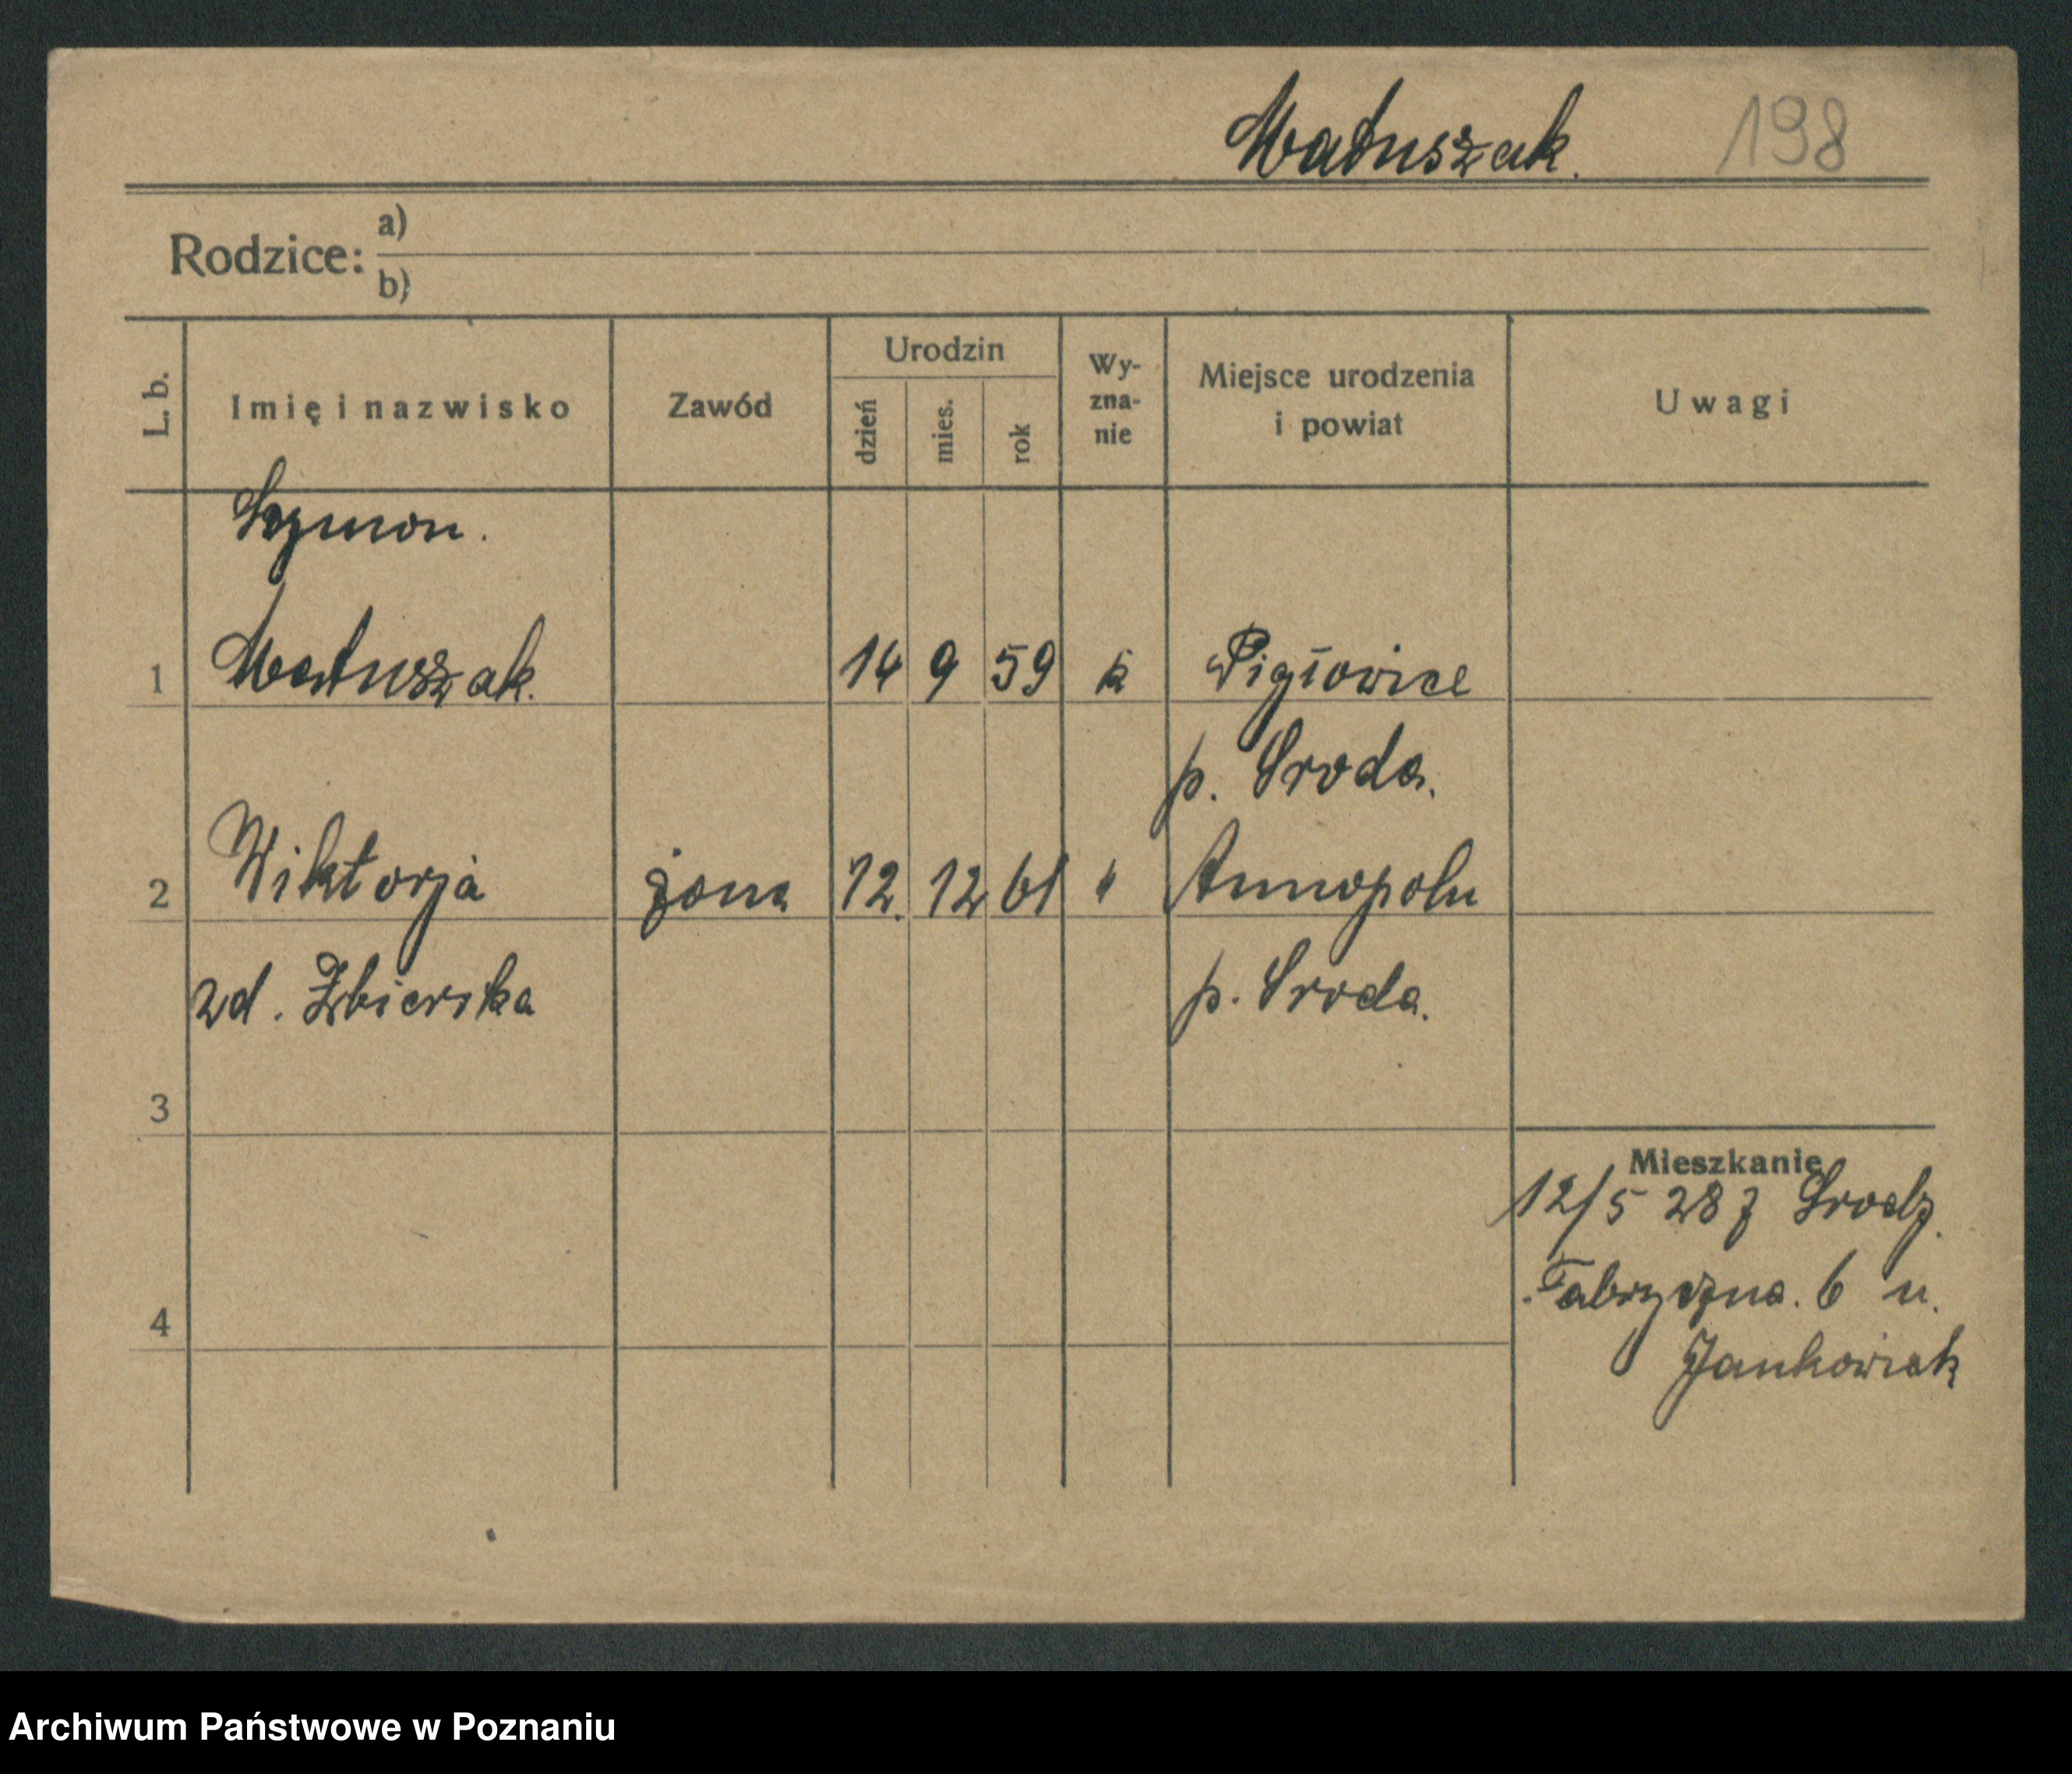 Matuszak. 198
Rodzice: a)
b)
L. b. Imię i nazwisko Zawód Urodzin dzień mies. rok Wy-zna-nie Miejsce urodzenia i powiat Uwagi
Szymon.
1 Matuszak. 14 9 59 k Pigłowice
p. Sroda.
2 Wiktorja żona 12. 12 61 " Annopolu
zd. Zbierska p. Sroda.
3
Mieszkanie
12/5 28 z Srody.
4 Fabryczna. 6 u.
Jankowiak
Archiwum Państwowe w Poznaniu